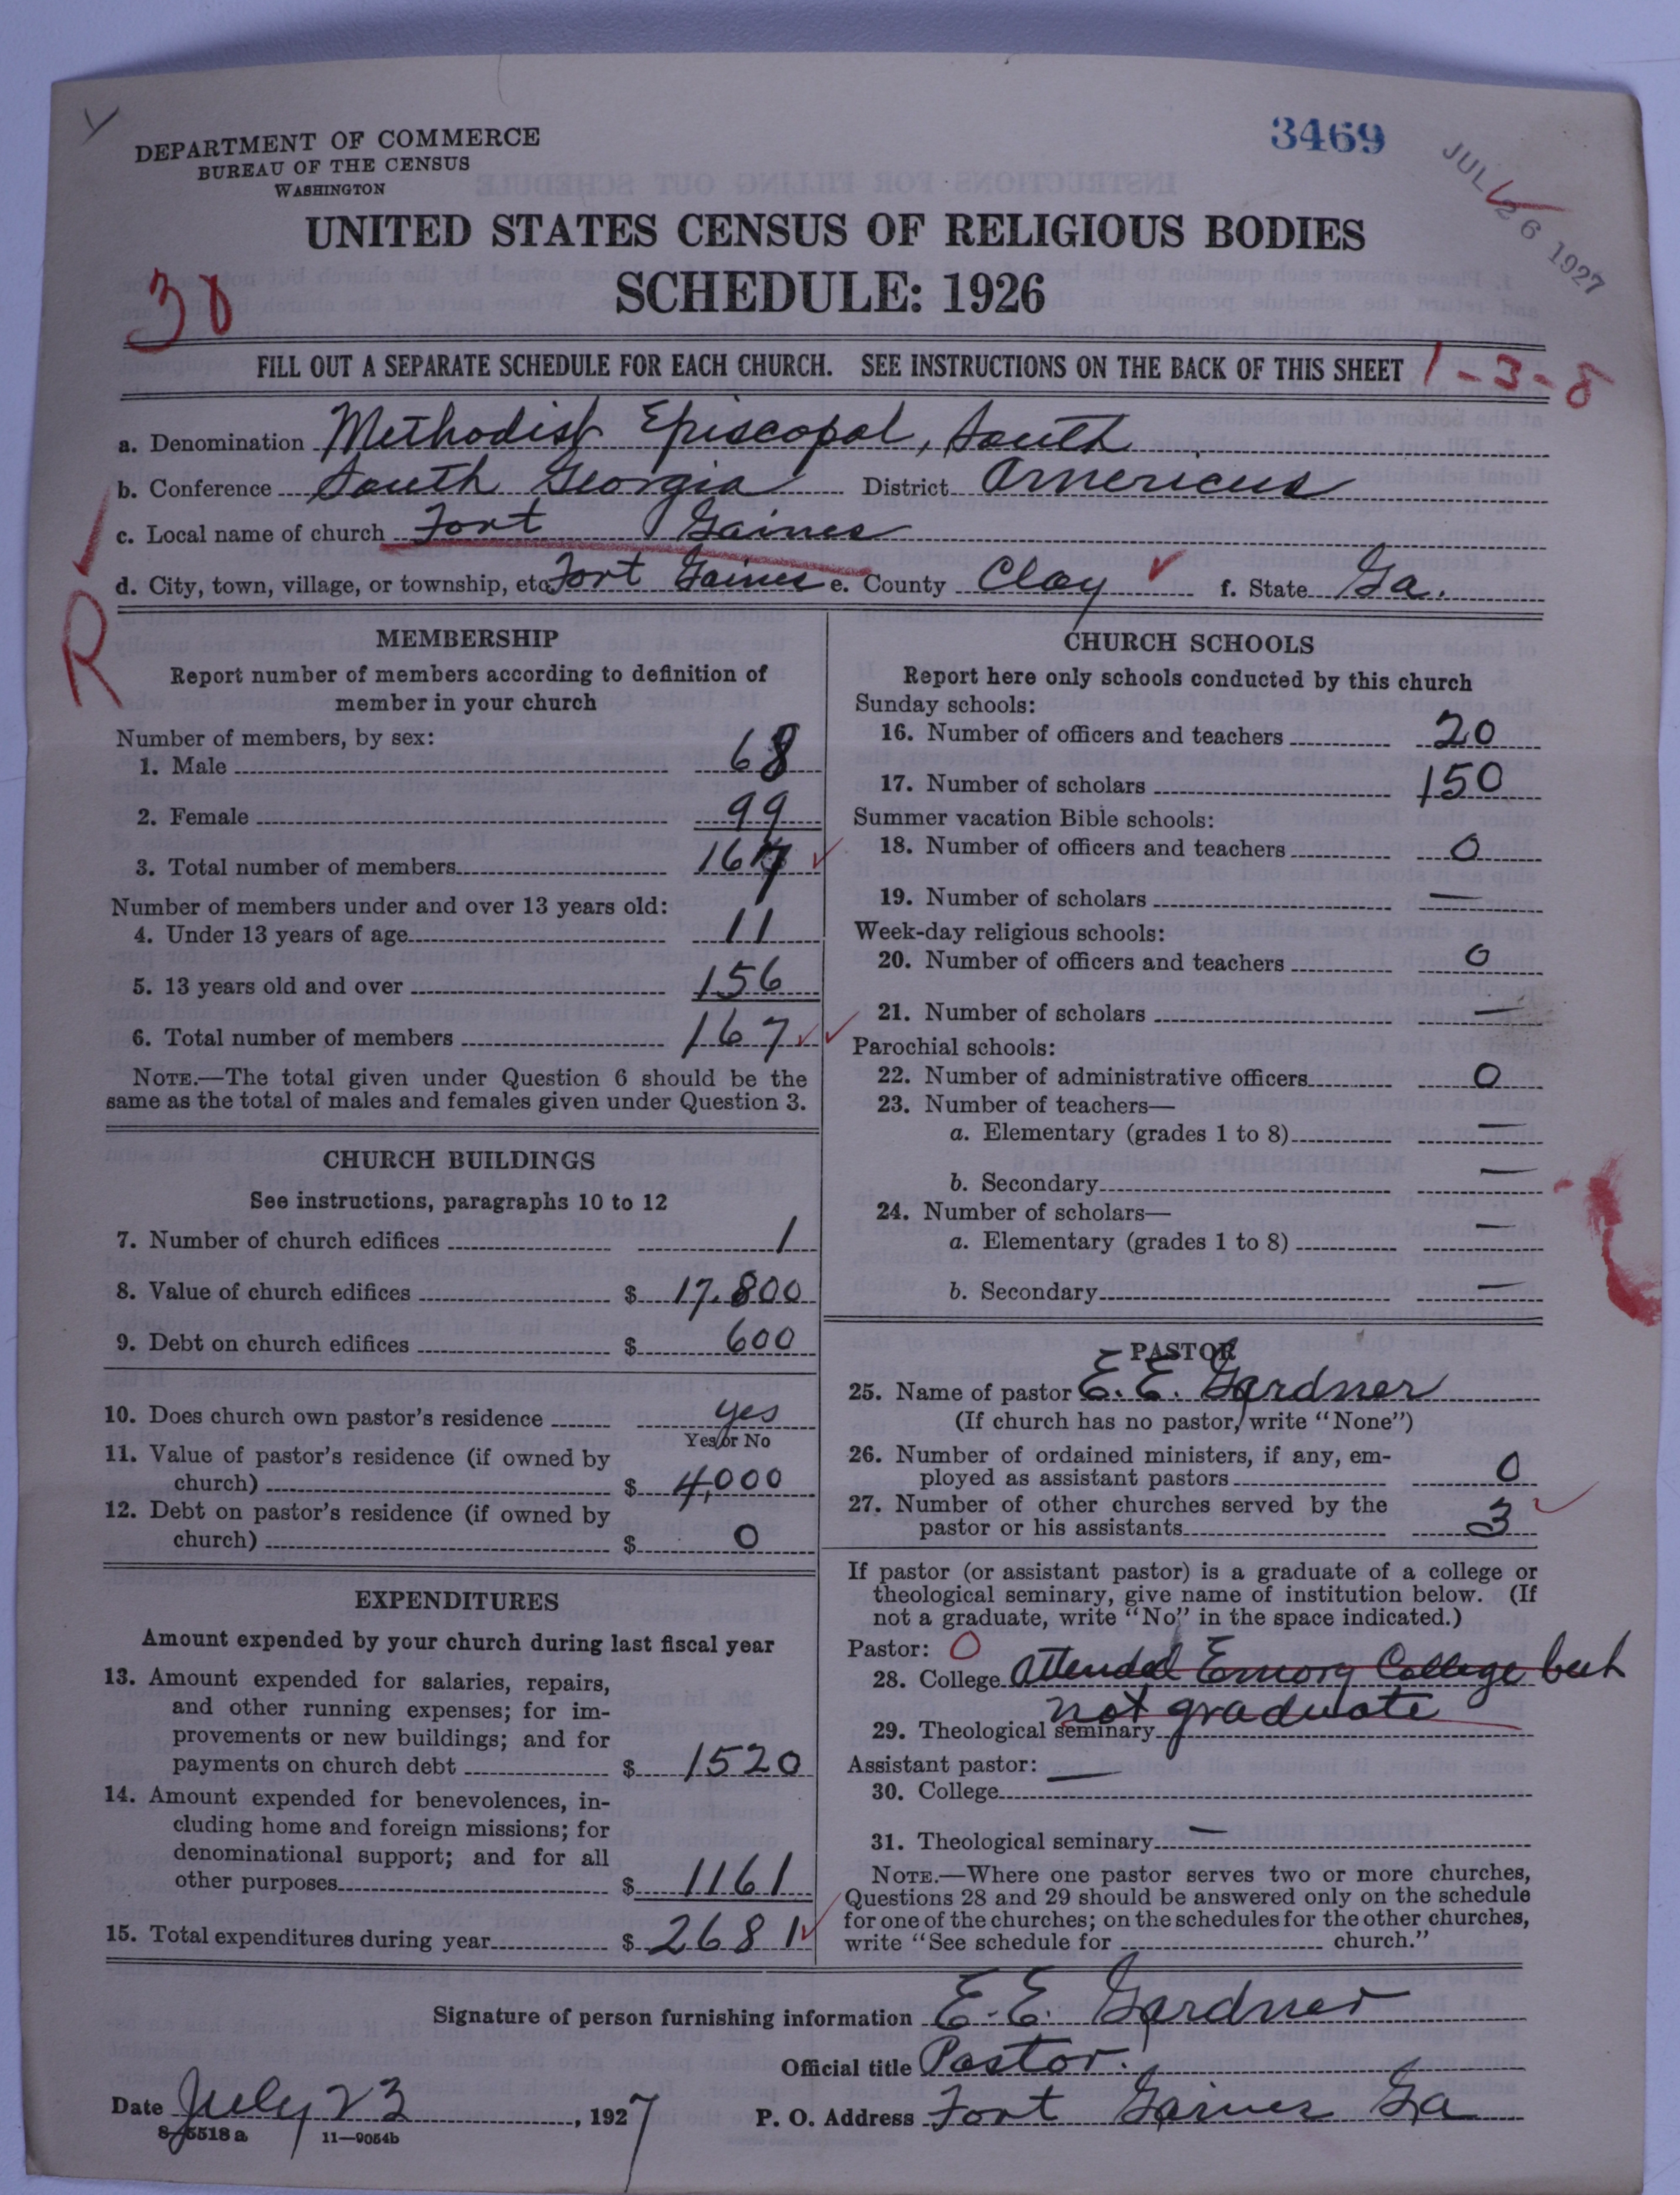 DEPARTMENT OF COMMERCE
BUREAU OF THE CENSUS
WASHINGTON
3469
JUL 26 1927
UNITED STATES CENSUS OF RELIGIOUS BODIES
SCHEDULE: 1926
38
FILL OUT A SEPARATE SCHEDULE FOR EACH CHURCH. SEE INSTRUCTIONS ON THE BACK OF THIS SHEET
1-3-8
a. Denomination Methodist Episcopal, South
b. Conference South Georgia District Americus
c. Local name of church Fort Gaines
d. City, town, village, or township, etc. Fort Gaines e. County Clay f. State Ga.
R
MEMBERSHIP
Report number of members according to definition of
member in your church
Number of members, by sex:
1. Male 68
2. Female 99
3. Total number of members 167
Number of members under and over 13 years old:
4. Under 13 years of age 11
5. 13 years old and over 156
6. Total number of members 167
NOTE.—The total given under Question 6 should be the
same as the total of males and females given under Question 3.
CHURCH BUILDINGS
See instructions, paragraphs 10 to 12
7. Number of church edifices 1
8. Value of church edifices $ 17,800
9. Debt on church edifices $ 600
10. Does church own pastor's residence yes
Yes or No
11. Value of pastor's residence (if owned by
church) $ 4,000
12. Debt on pastor's residence (if owned by
church) $ 0
EXPENDITURES
Amount expended by your church during last fiscal year
13. Amount expended for salaries, repairs,
and other running expenses; for im-
provements or new buildings; and for
payments on church debt $ 1520
14. Amount expended for benevolences, in-
cluding home and foreign missions; for
denominational support; and for all
other purposes $ 1161
15. Total expenditures during year $ 2681
CHURCH SCHOOLS
Report here only schools conducted by this church
Sunday schools:
16. Number of officers and teachers 20
17. Number of scholars 150
Summer vacation Bible schools:
18. Number of officers and teachers 0
19. Number of scholars —
Week-day religious schools:
20. Number of officers and teachers 0
21. Number of scholars —
Parochial schools:
22. Number of administrative officers 0
23. Number of teachers—
a. Elementary (grades 1 to 8) —
b. Secondary —
24. Number of scholars—
a. Elementary (grades 1 to 8) —
b. Secondary —
PASTOR
25. Name of pastor E. E. Gardner
(If church has no pastor, write "None")
26. Number of ordained ministers, if any, em-
ployed as assistant pastors 0
27. Number of other churches served by the
pastor or his assistants 3
If pastor (or assistant pastor) is a graduate of a college or
theological seminary, give name of institution below. (If
not a graduate, write "No" in the space indicated.)
Pastor: 0
28. College attended Emory College but
not graduate
29. Theological seminary
Assistant pastor: —
30. College
31. Theological seminary —
NOTE.—Where one pastor serves two or more churches,
Questions 28 and 29 should be answered only on the schedule
for one of the churches; on the schedules for the other churches,
write "See schedule for church."
Signature of person furnishing information E. E. Gardner
Official title Pastor.
Date July 23, 1927 P. O. Address Fort Gaines Ga
8-5518a 11—9054b